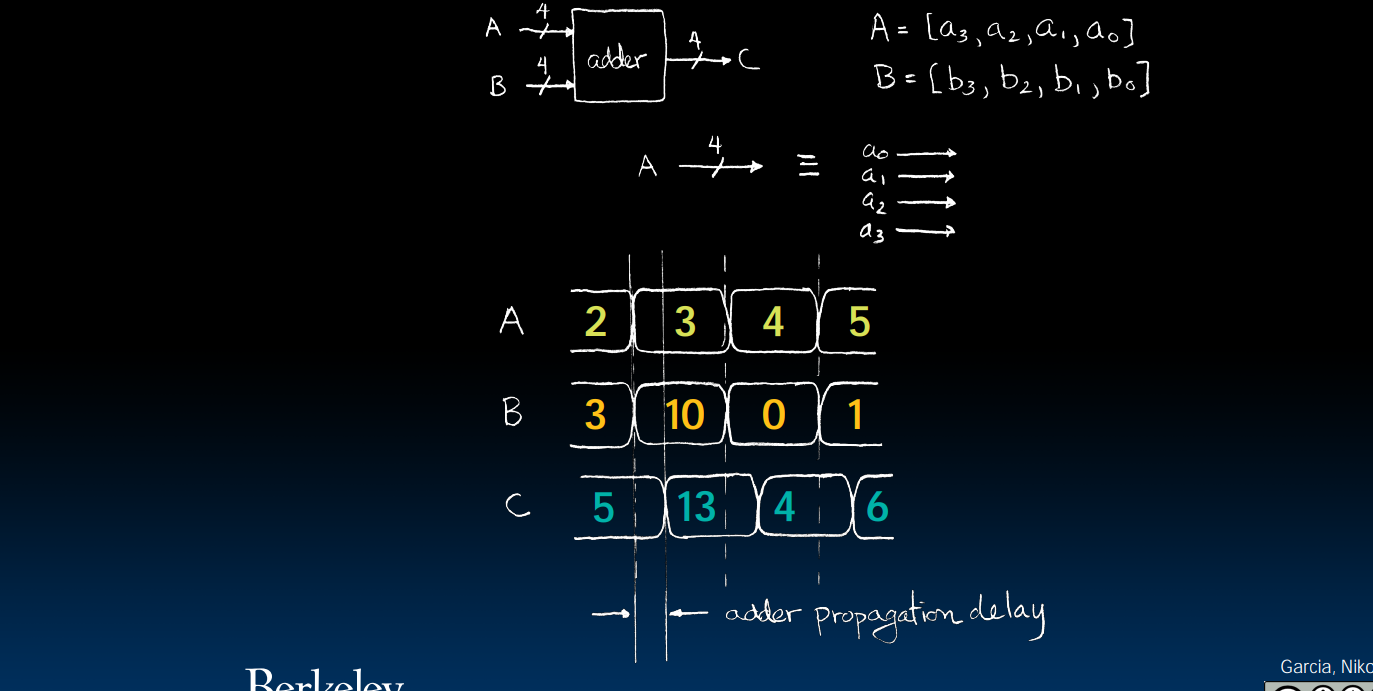 A 4 adder 4 C
B 4
A = [a₃, a₂, a₁, a₀]
B = [b₃, b₂, b₁, b₀]
A 4 ≡
a₀
a₁
a₂
a₃
A 2 3 4 5
B 3 10 0 1
C 5 13 4 6
adder propagation delay
Berkeley
Garcia,